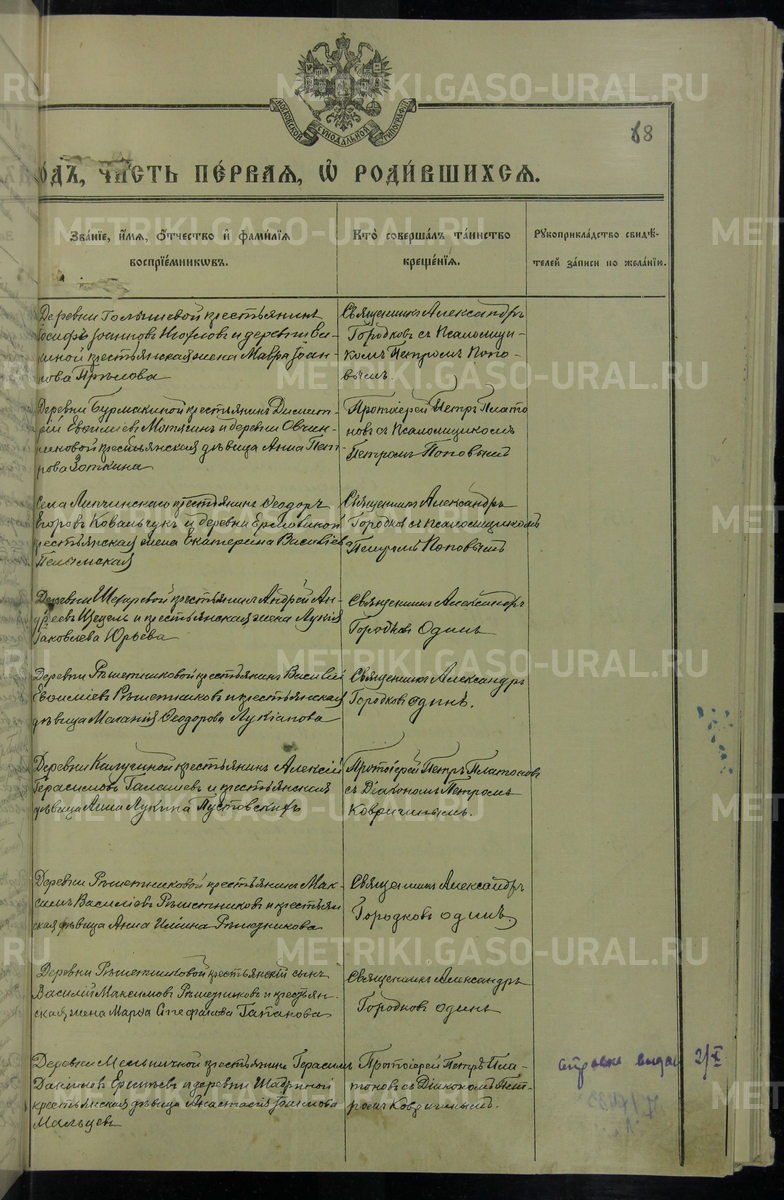 МОСКОВСКОЙ СѴНОДАЛЬНОЙ ТИПОГРАФІИ
68
ВО́ДЪ, ЧА́СТЬ ПЕ́РВАЯ, Ѡ РОДИ́ВШИХСЯ.
Зва́нїе, и́мя, о́тчество и фами́лїя воспрїе́мниковъ.
Кто̀ соверша́лъ та́инство креще́нїя.
Рꙋкоприкла́дство свидѣ́телей за́писи по жела́нїю.
крестьянинъ
Іосифъ Іоанновъ и деревни
крестьянская жена Мавра Іоаннова
Священникъ Александръ
Городковъ съ Псаломщи-
комъ Петромъ Попо-
вымъ.
Деревни Бурмакиной крестьянинъ Димит-
рій и деревни Овчин-
никовой крестьянская дѣвица Анна Пет-
рова Зоткина
Протоіерей Петръ Плато-
новъ съ Псаломщикомъ
Петромъ Поповымъ
Села Липчинскаго крестьянинъ Ѳеодоръ
Егоровъ Ковальчукъ и деревни
крестьянская жена Екатерина Василіева
Священникъ Александръ
Городковъ съ Псаломщикомъ
Петромъ Поповымъ
Деревни крестьянинъ Андрей Ан-
дреевъ и крестьянская жена Лукія
Іаковлева Юрьева
Священникъ Александръ
Городковъ Одинъ
Деревни Рѣшетниковой крестьянинъ Василій
Евѳиміевъ Рѣшетниковъ и крестьянская
дѣвица Меланія Ѳеодорова Лукіанова
Священникъ Александръ
Городковъ одинъ.
Деревни Калугиной крестьянинъ Алексій
Герасимовъ Галашевъ и крестьянская
дѣвица Анна Лукина Пустовскихъ
Протоіерей Петръ Платоновъ
съ Діакономъ Петромъ
Ковригинымъ.
Деревни Рѣшетниковой крестьянинъ Мак-
симъ Василіевъ Рѣшетниковъ и крестьян-
ская дѣвица Анна Рѣшетникова
Священникъ Александръ
Городковъ одинъ.
Деревни Рѣшетниковой крестьянскій сынъ
Василій Максимовъ Рѣшетниковъ и крестьян-
ская жена Марѳа Стефанова Гапанова
Священникъ Александръ
Городковъ одинъ
Деревни Мельничной крестьянинъ Герасимъ
и деревни Шадриной
крестьянская дѣвица Анастасія
Мальцевъ
Протоіерей Петръ Пла-
тоновъ съ Діакономъ Пет-
ромъ Ковригинымъ.
справка выдан
2/X
METRIKI.GASO-URAL.RU